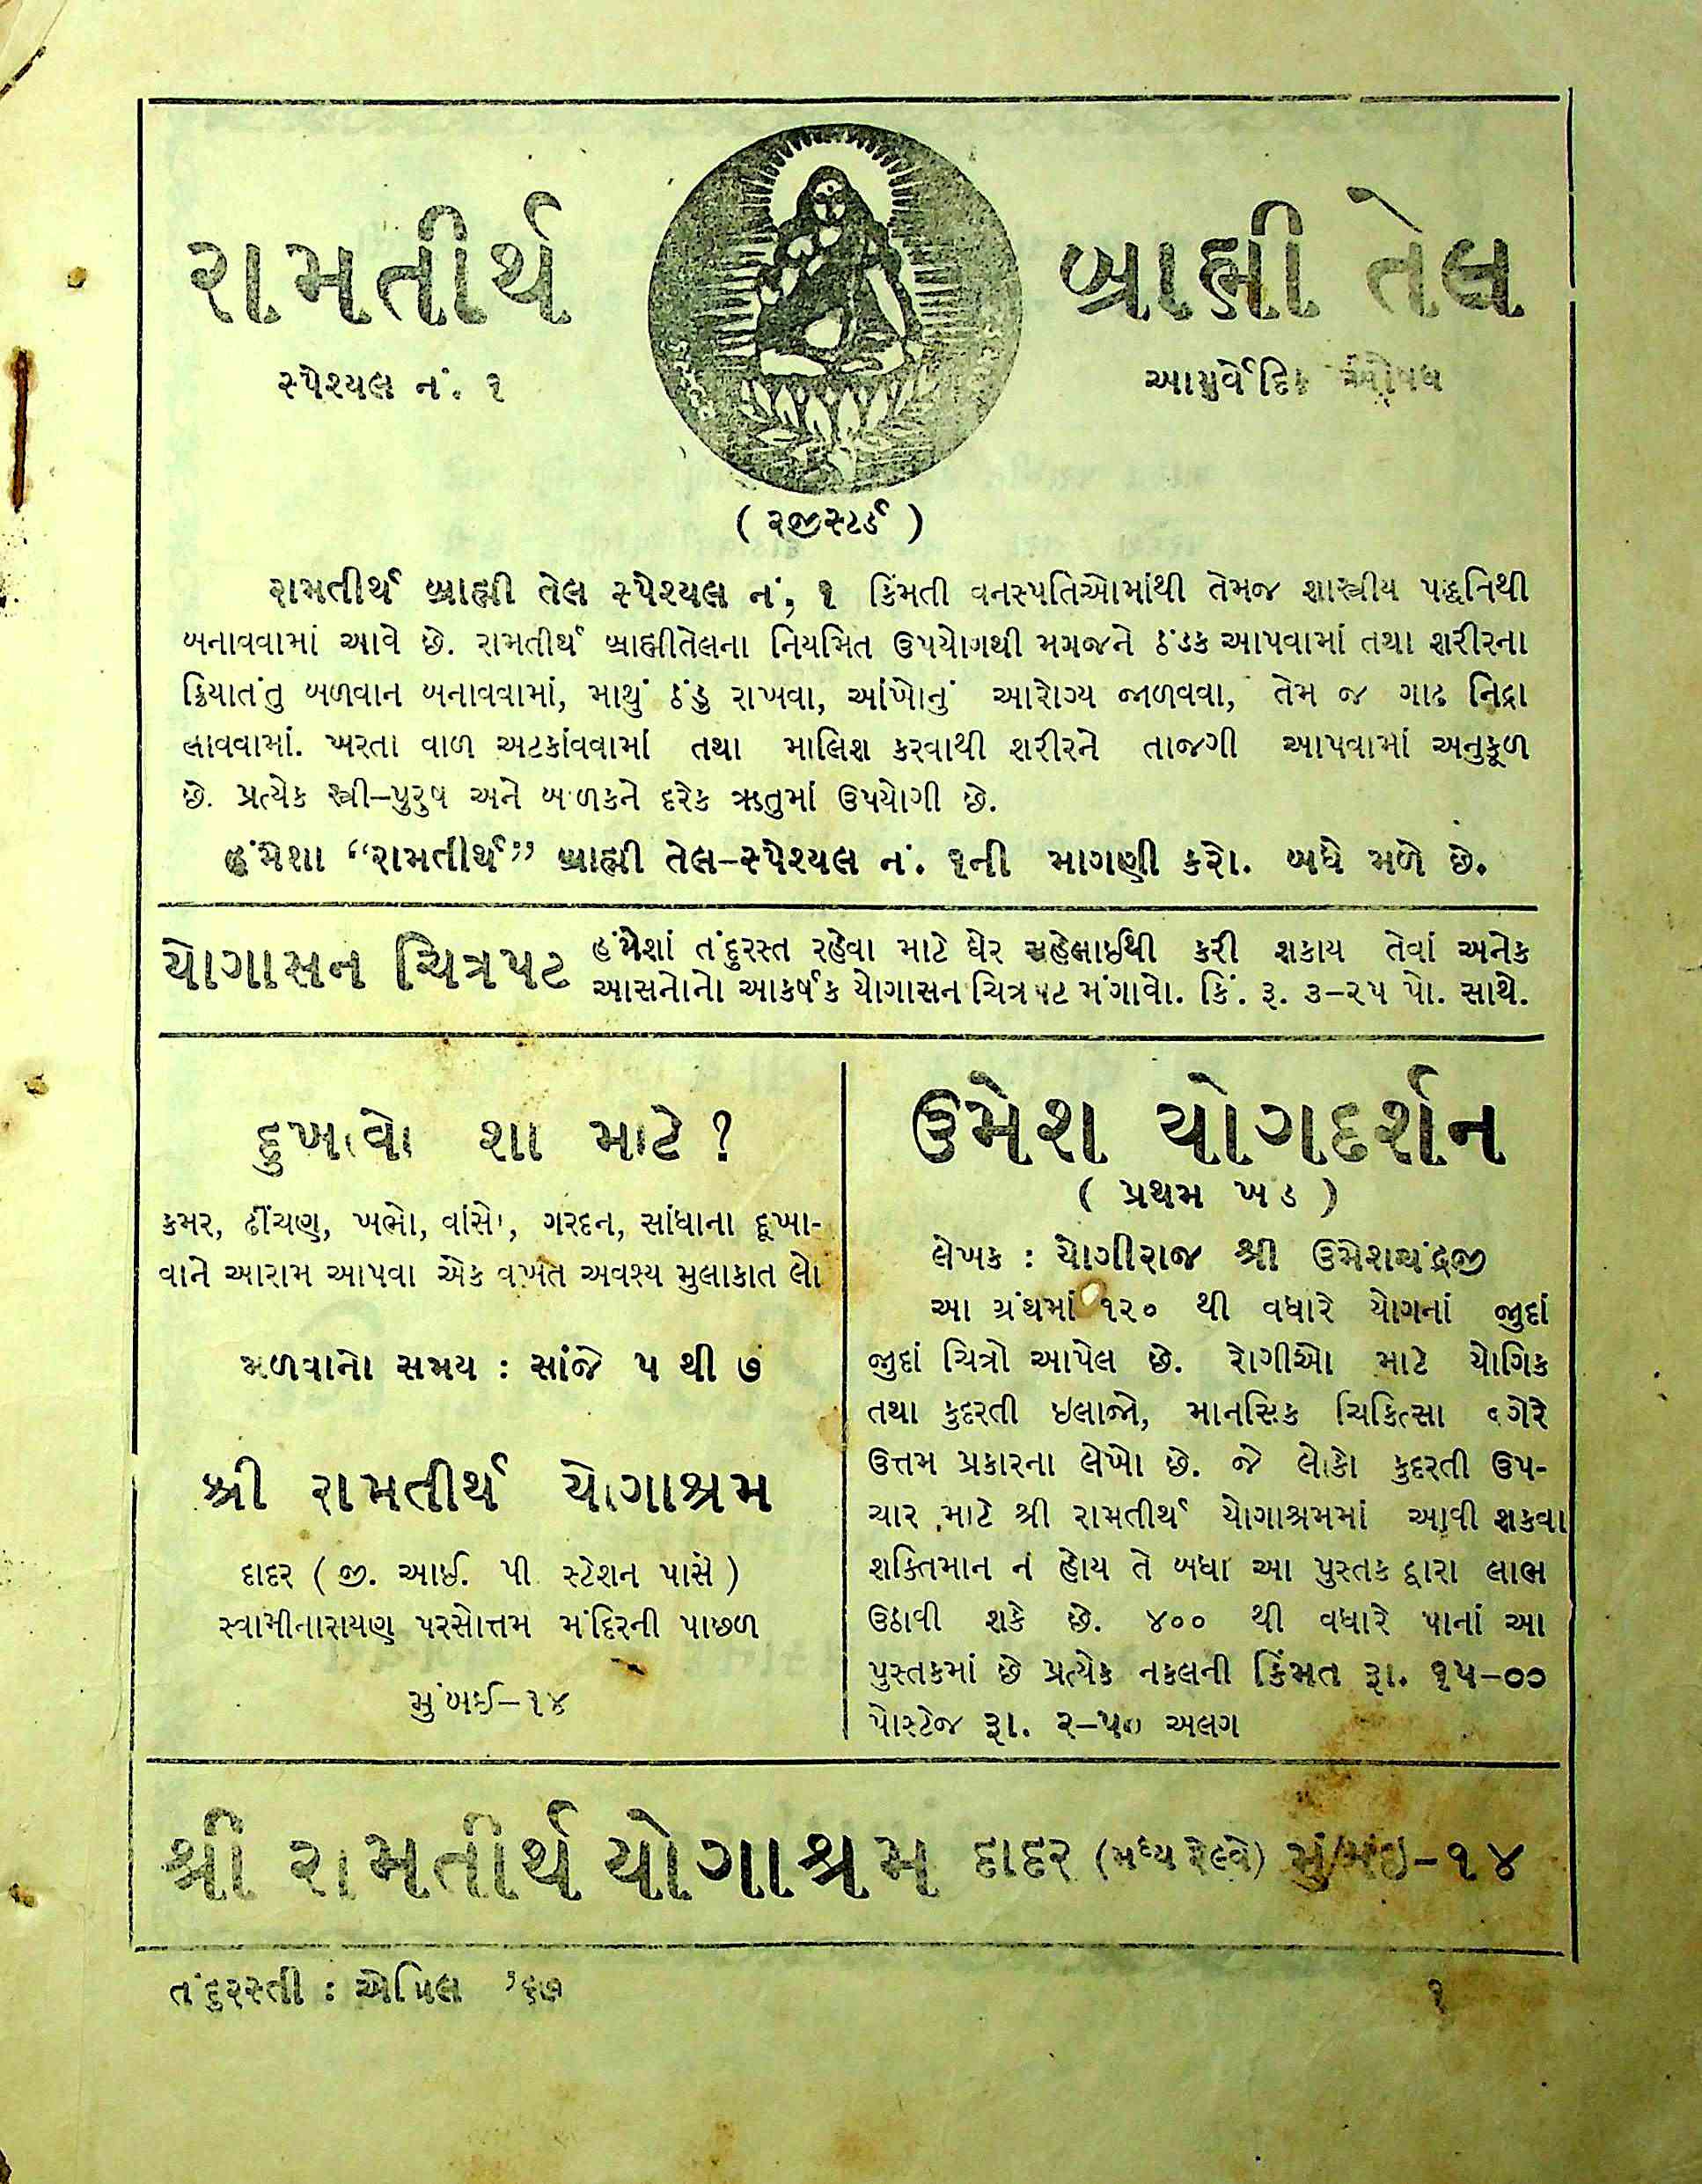 રામતીર્થ
બ્રાહ્મી તેલ
સ્પેશ્યલ નં. ૧
આયુર્વેદિક ઔષધ
( રજીસ્ટર્ડ )
રામતીર્થ બ્રાહ્મી તેલ સ્પેશ્યલ નં, ૧ કિંમતી વનસ્પતિઓમાંથી તેમજ શાસ્ત્રીય પદ્ધતિથી
બનાવવામાં આવે છે. રામતીર્થ બ્રાહ્મીતેલના નિયમિત ઉપયોગથી મગજને ઠંડક આપવામાં તથા શરીરના
ક્રિયાતંતુ બળવાન બનાવવામાં, માથું ઠંડુ રાખવા, આંખોનું આરોગ્ય જાળવવા, તેમ જ ગાઢ નિદ્રા
લાવવામાં. ખરતા વાળ અટકાંવવામાં તથા માલિશ કરવાથી શરીરને તાજગી આપવામાં અનુકૂળ
છે. પ્રત્યેક સ્ત્રી–પુરુષ અને બાળકને દરેક ઋતુમાં ઉપયોગી છે.
હંમેશા “રામતીર્થ” બ્રાહ્મી તેલ–સ્પેશ્યલ નં. ૧ની માગણી કરો. બધે મળે છે.
યોગાસન ચિત્રપટ
હંમેશાં તંદુરસ્ત રહેવા માટે ઘેર સહેલાઈથી કરી શકાય તેવાં અનેક
આસનોનો આકર્ષક યોગાસન ચિત્રપટ મંગાવો. કિં. રૂ. ૩–૨૫ પો. સાથે.
દુખાવો શા માટે ?
કમર, ઢીંચણ, ખભો, વાંસો, ગરદન, સાંધાના દૂખા-
વાને આરામ આપવા એક વખત અવશ્ય મુલાકાત લો
મળવાનો સમય : સાંજે ૫ થી ૭
શ્રી રામતીર્થ યોગાશ્રમ
દાદર ( જી. આઈ. પી. સ્ટેશન પાસે )
સ્વામીનારાયણ પરસોત્તમ મંદિરની પાછળ
મુંબઈ–૧૪
ઉમેશ યોગદર્શન
( પ્રથમ ખંડ )
લેખક : યોગીરાજ શ્રી ઉમેશચંદ્રજી
આ ગ્રંથમાં ૧૨૦ થી વધારે યોગનાં જુદાં
જુદાં ચિત્રો આપેલ છે. રોગીઓ માટે યોગિક
તથા કુદરતી ઇલાજો, માનસિક ચિકિત્સા વગેરે
ઉત્તમ પ્રકારના લેખો છે. જે લોકો કુદરતી ઉપ-
ચાર માટે શ્રી રામતીર્થ યોગાશ્રમમાં આવી શકવા
શક્તિમાન ન હોય તે બધા આ પુસ્તક દ્વારા લાભ
ઉઠાવી શકે છે. ૪૦૦ થી વધારે પાનાં આ
પુસ્તકમાં છે પ્રત્યેક નકલની કિંમત રૂા. ૧૫–૦૦
પોસ્ટેજ રૂા. ૨–૫૦ અલગ
શ્રી રામતીર્થ યોગાશ્રમ દાદર (મધ્ય રેલ્વે) મુંબઇ–૧૪
તંદુરસ્તી : એપ્રિલ ’૬૭
૧